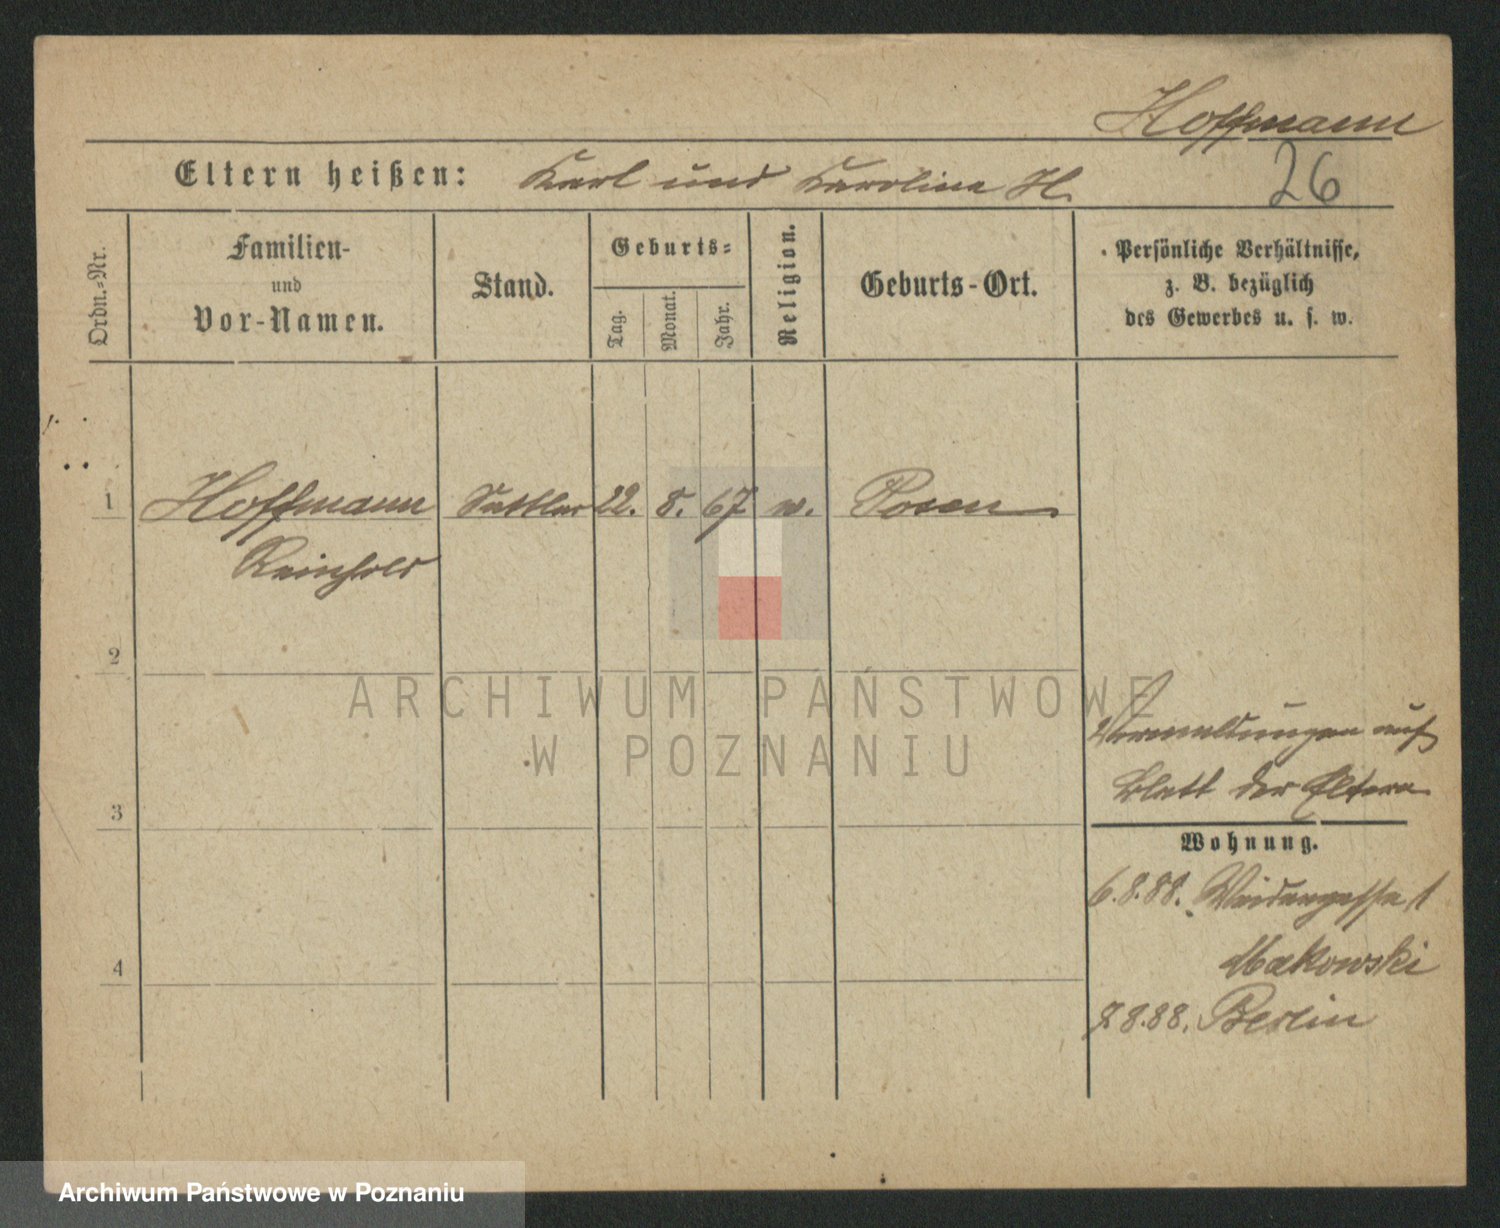 Hoffmann
Eltern heißen: Karl und Karoline H.
26
Ordn.-Nr.
Familien-
und
Vor-Namen.
Stand.
Geburts-
Tag.
Monat.
Jahr.
Religion.
Geburts-Ort.
Persönliche Verhältnisse,
z. B. bezüglich
des Gewerbes u. s. w.
1 Hoffmann Sattler 22. 8. 67 w. Posen
Reinhold
2
ARCHIWUM PAŃSTWOWE
W POZNANIU
Vermeldungen auf
Blatt der Eltern
3
Wohnung.
6.8.88. Weidengasse 1
Makowski
4
8.88. Berlin
Archiwum Państwowe w Poznaniu